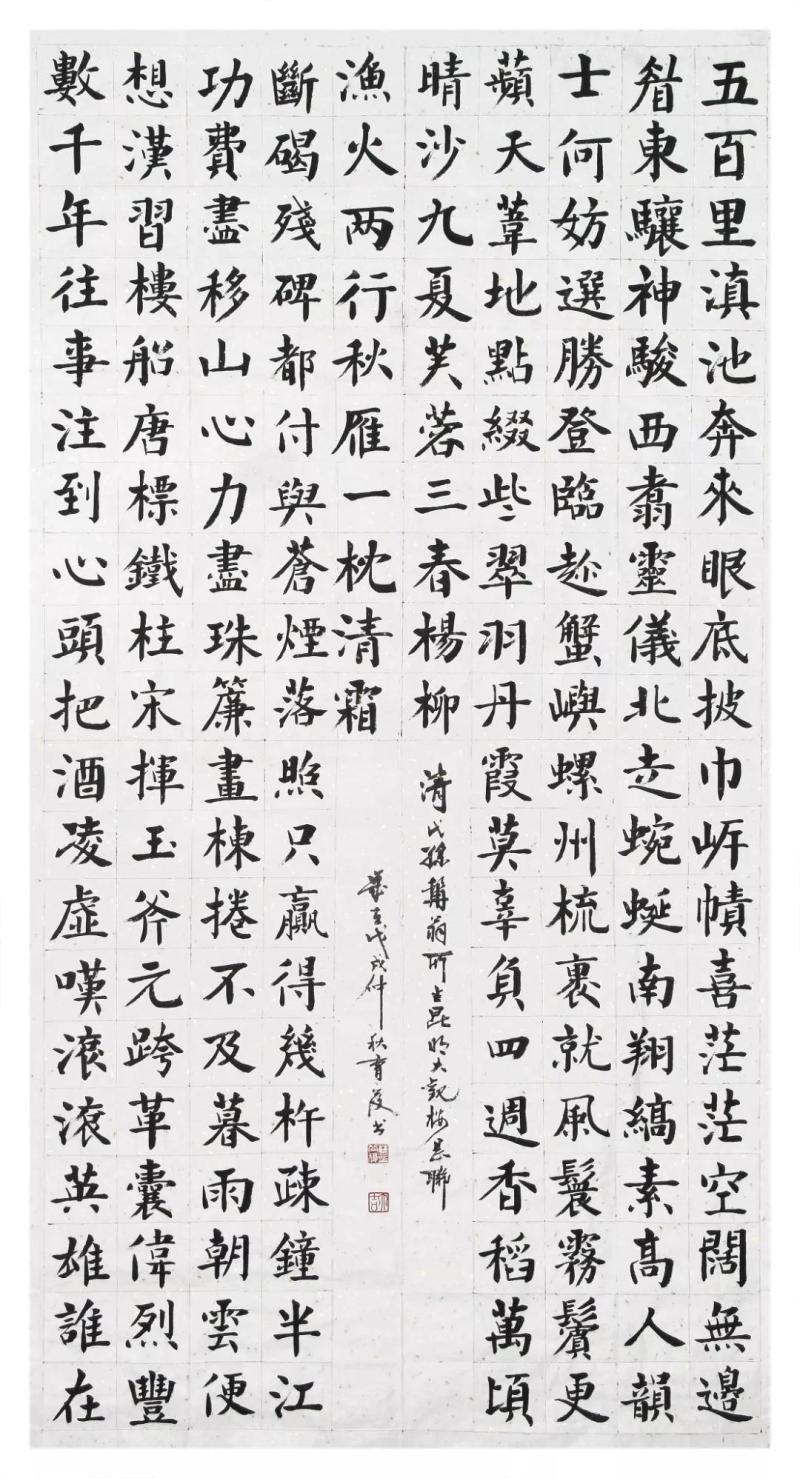 五百里滇池奔來眼底披巾岸幘喜茫茫空闊無邊
㸔東驤神駿西翥靈儀北走蜿蜒南翔縞素高人韻
士何妨選勝登臨趁蟹嶼螺州梳裹就風鬟霧鬢更
蘋天葦地點綴些翠羽丹霞莫辜負四週香稻萬頃
晴沙九夏芙蓉三春楊柳
清代孫髯翁所昆明大觀樓長聯
數千年往事注到心頭把酒凌虛嘆滾滾英雄誰在
想漢習樓船唐標鐵柱宋揮玉斧元跨革囊偉烈豐
功費盡移山心力盡珠簾畫棟捲不及暮雨朝雲便
斷碣殘碑都付與蒼煙落照只贏得幾杵疎鐘半江
漁火兩行秋雁一枕清霜
歲在戊戌仲秋育书